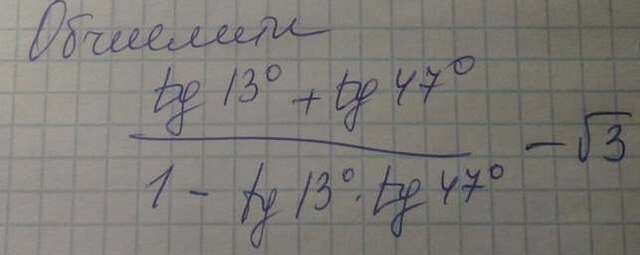 Обчислити
tg 13° + tg 47°
- √3
1 - tg 13° · tg 47°